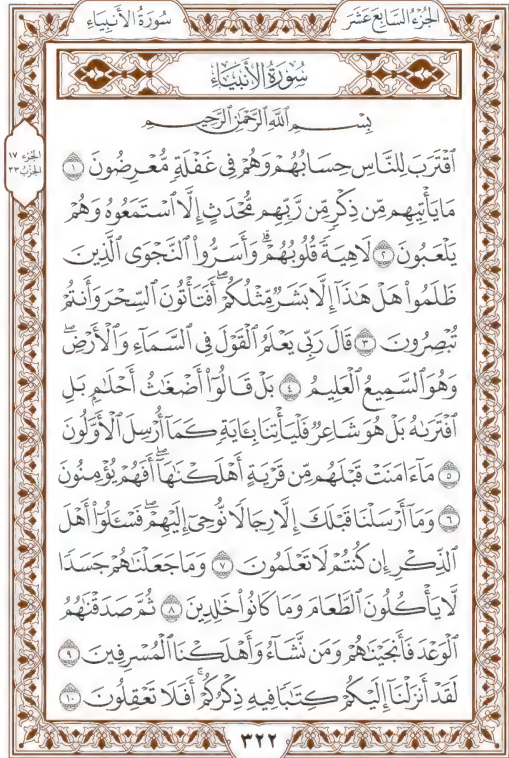 سُورَةُ الأَنبِيَاءِ
الجُزْءُ السَّابِعَ عَشَرَ
سُورَةُ الأَنبِيَاءِ
الجزء ١٧
الحزب ٣٣
بِسْمِ ٱللَّهِ ٱلرَّحْمَٰنِ ٱلرَّحِيمِ
ٱقْتَرَبَ لِلنَّاسِ حِسَابُهُمْ وَهُمْ فِى غَفْلَةٍ مُّعْرِضُونَ ١
مَا يَأْتِيهِم مِّن ذِكْرٍ مِّن رَّبِّهِم مُّحْدَثٍ إِلَّا ٱسْتَمَعُوهُ وَهُمْ
يَلْعَبُونَ ٢ لَاهِيَةً قُلُوبُهُمْ ۗ وَأَسَرُّوا۟ ٱلنَّجْوَى ٱلَّذِينَ
ظَلَمُوا۟ هَلْ هَٰذَآ إِلَّا بَشَرٌ مِّثْلُكُمْ ۖ أَفَتَأْتُونَ ٱلسِّحْرَ وَأَنتُمْ
تُبْصِرُونَ ٣ قَالَ رَبِّى يَعْلَمُ ٱلْقَوْلَ فِى ٱلسَّمَآءِ وَٱلْأَرْضِ ۖ
وَهُوَ ٱلسَّمِيعُ ٱلْعَلِيمُ ٤ بَلْ قَالُوٓا۟ أَضْغَٰثُ أَحْلَٰمٍۭ بَلِ
ٱفْتَرَىٰهُ بَلْ هُوَ شَاعِرٌ فَلْيَأْتِنَا بِـَٔايَةٍ كَمَآ أُرْسِلَ ٱلْأَوَّلُونَ
٥ مَآ ءَامَنَتْ قَبْلَهُم مِّن قَرْيَةٍ أَهْلَكْنَٰهَآ ۖ أَفَهُمْ يُؤْمِنُونَ
٦ وَمَآ أَرْسَلْنَا قَبْلَكَ إِلَّا رِجَالًا نُّوحِىٓ إِلَيْهِمْ ۖ فَسْـَٔلُوٓا۟ أَهْلَ
ٱلذِّكْرِ إِن كُنتُمْ لَا تَعْلَمُونَ ٧ وَمَا جَعَلْنَٰهُمْ جَسَدًا
لَّا يَأْكُلُونَ ٱلطَّعَامَ وَمَا كَانُوا۟ خَٰلِدِينَ ٨ ثُمَّ صَدَقْنَٰهُمُ
ٱلْوَعْدَ فَأَنجَيْنَٰهُمْ وَمَن نَّشَآءُ وَأَهْلَكْنَا ٱلْمُسْرِفِينَ ٩
لَقَدْ أَنزَلْنَآ إِلَيْكُمْ كِتَٰبًا فِيهِ ذِكْرُكُمْ ۖ أَفَلَا تَعْقِلُونَ ١٠
٣٢٢